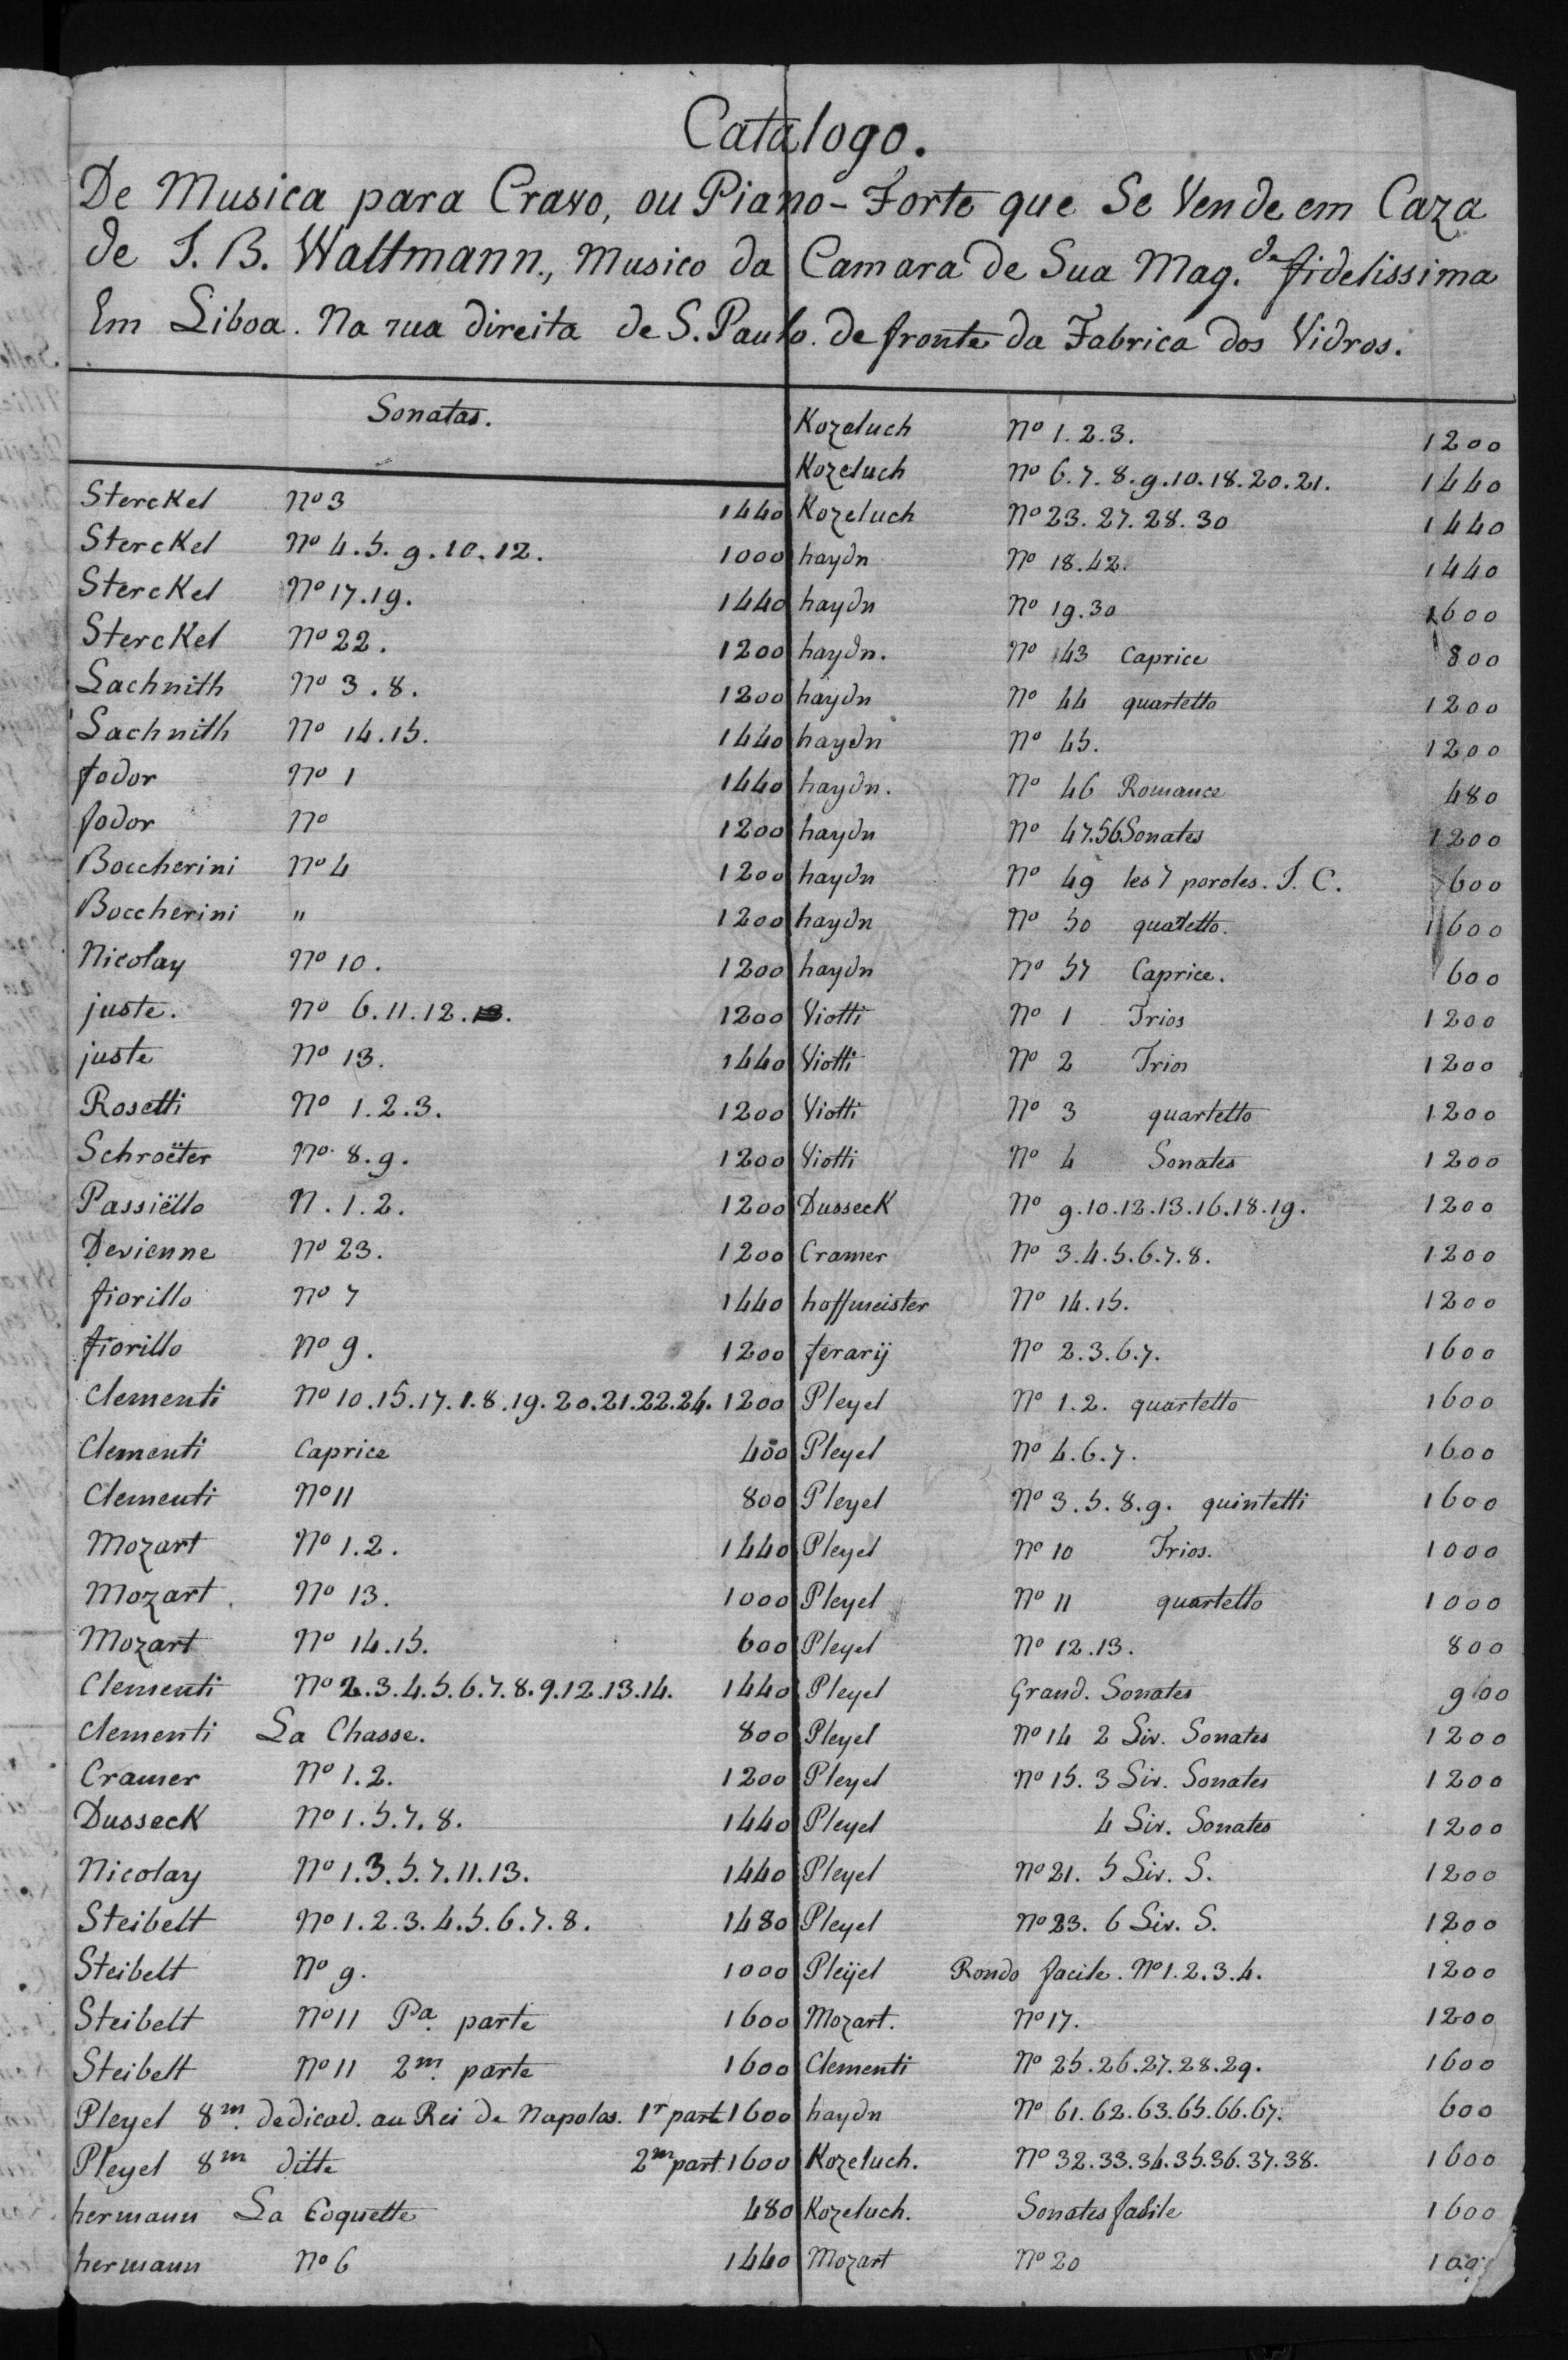 Catalogo.
De Musica para Cravo, ou Piano-Forte que Se Vende em Caza
de J. B. Waltmann., Musico da Camara de Sua Mag.de fidelissima
Em Liboa. Na rua direita de S. Paulo. de fronte da Fabrica dos Vidros.
Sonatas.
Sterckel No 3 1440
Sterckel No 4.5.9.10.12. 1000
Sterckel No 17.19. 1440
Sterckel No 22. 1200
Lachnith No 3.8. 1200
Lachnith No 14.15. 1440
fodor No 1 1440
fodor No 1200
Boccherini No 4 1200
Boccherini " 1200
Nicolay No 10. 1200
juste. No 6.11.12. 1200
juste No 13. 1440
Rosetti No 1.2.3. 1200
Schroëter No 8.9. 1200
Passiëllo N. 1.2. 1200
Devienne No 23. 1200
fiorillo No 7 1440
fiorillo No 9. 1200
Clementi No 10.15.17.1.8.19.20.21.22.24. 1200
Clementi Caprice 400
Clementi No 11 800
Mozart No 1.2. 1440
Mozart. No 13. 1000
Mozart No 14.15. 600
Clementi No 2.3.4.5.6.7.8.9.12.13.14. 1440
Clementi La Chasse. 800
Cramer No 1.2. 1200
Dusseck No 1.5.7.8. 1440
Nicolay No 1.3.5.7.11.13. 1440
Steibelt No 1.2.3.4.5.6.7.8. 1480
Steibelt No 9. 1000
Steibelt No 11 Pa. parte 1600
Steibelt No 11 2m. parte 1600
Pleyel 8m. dedicad. au Rei de Napolas. 1r part 1600
Pleyel 8m ditte 2m part. 1600
hermann La Coquette 480
hermann No 6 1440
Kozeluch No 1.2.3. 1200
Kozeluch No 6.7.8.9.10.18.20.21. 1440
Kozeluch No 23.27.28.30 1440
haydn No 18.42. 1440
haydn No 19.30 1600
haydn. No 43 Caprice 800
haydn No 44 quartetto 1200
haydn No 45. 1200
haydn. No 46 Romance 480
haydn No 47.56 Sonates 1200
haydn No 49 les 7 paroles. J. C. 600
haydn No 50 quatetto. 1600
haydn No 57 Caprice. 600
Viotti No 1 Trios 1200
Viotti No 2 Trios 1200
Viotti No 3 quartetto 1200
Viotti No 4 Sonates 1200
Dusseck No 9.10.12.13.16.18.19. 1200
Cramer No 3.4.5.6.7.8. 1200
hoffmeister No 14.15. 1200
ferarij No 2.3.6.7. 1600
Pleyel No 1.2. quartetto 1600
Pleyel No 4.6.7. 1600
Pleyel No 3.5.8.9. quintetti 1600
Pleyel No 10 Trios. 1000
Pleyel No 11 quartetto 1000
Pleyel No 12.13. 800
Pleyel Grand. Sonates 900
Pleyel No 14 2 Liv. Sonates 1200
Pleyel No 15. 3 Liv. Sonates 1200
Pleyel 4 Liv. Sonates 1200
Pleyel No 21. 5 Liv. S. 1200
Pleyel No 23. 6 Liv. S. 1200
Pleÿel Rondo facile. No 1.2.3.4. 1200
Mozart. No 17. 1200
Clementi No 25.26.27.28.29. 1600
haydn No 61.62.63.65.66.67. 600
Kozeluch. No 32.33.34.35.36.37.38. 1600
Kozeluch. Sonates fasile 1600
Mozart No 20